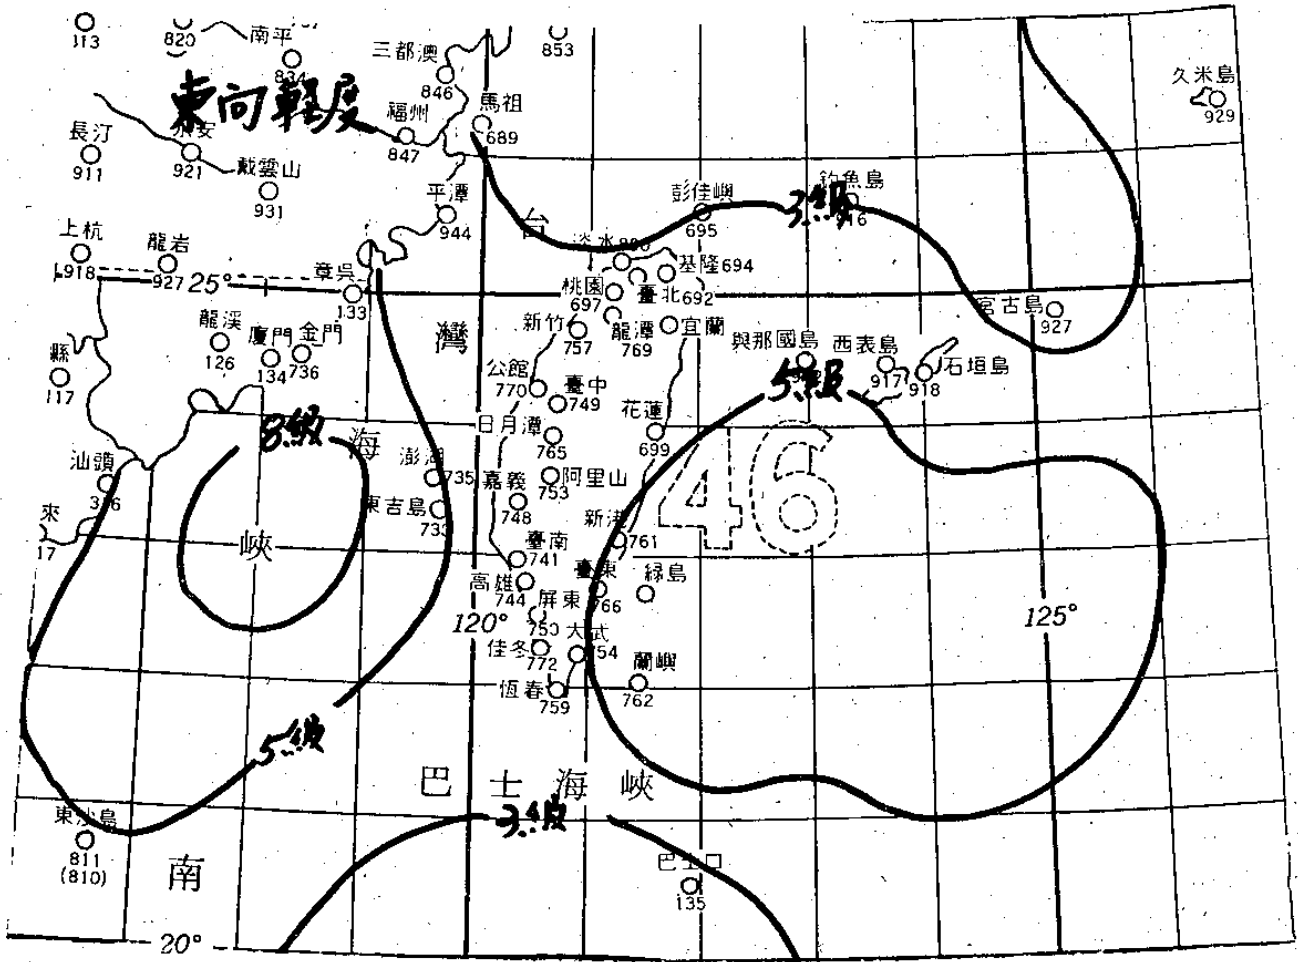 113
820
南平
834
三都澳
846
853
久米島
929
東向輕度
福州
847
馬祖
689
長汀
911
永安
921
戴雲山
931
平潭
944
彭佳嶼
695
3級
釣魚島
916
上杭
918
龍岩
927
25°
章吳
133
台
淡水
基隆694
桃園
697
臺北692
宮古島
927
龍溪
126
廈門
134
金門
736
灣
新竹
757
龍潭
769
宜蘭
與那國島
西表島
917
石垣島
918
縣
117
公館
770
臺中
749
5級
8級
海
日月潭
765
花蓮
699
46
汕頭
316
澎湖
735
嘉義
748
753
阿里山
東吉島
733
來
17
峽
新港
761
臺南
741
高雄
744
臺東
766
綠島
屏東
750
120°
125°
佳冬
772
大武
754
恆春
759
蘭嶼
762
5級
巴士海峽
3級
東沙島
811
(810)
南
巴士口
135
20°